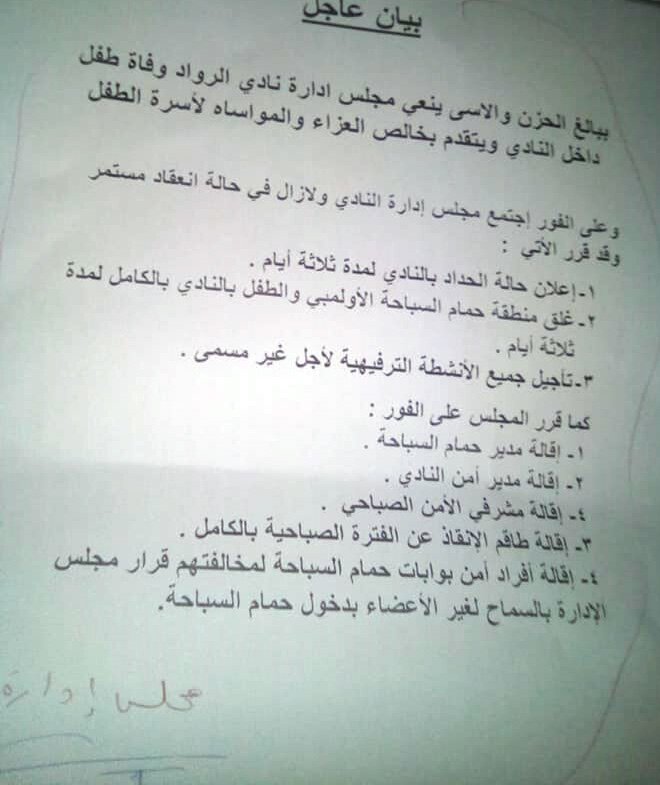 بيان عاجل
ببالغ الحزن والاسى ينعي مجلس ادارة نادي الرواد وفاة طفل
داخل النادي ويتقدم بخالص العزاء والمواساه لأسرة الطفل
وعلى الفور إجتمع مجلس إدارة النادي ولازال في حالة انعقاد مستمر
وقد قرر الأتي :
١- إعلان حالة الحداد بالنادي لمدة ثلاثة أيام .
٢- غلق منطقة حمام السباحة الأولمبي والطفل بالنادي بالكامل لمدة
ثلاثة أيام .
٣- تأجيل جميع الأنشطة الترفيهية لأجل غير مسمى .
كما قرر المجلس على الفور :
١- إقالة مدير حمام السباحة .
٢- إقالة مدير أمن النادي .
٤- إقالة مشرفي الأمن الصباحي .
٣- إقالة طاقم الإنقاذ عن الفترة الصباحية بالكامل .
٤- إقالة أفراد أمن بوابات حمام السباحة لمخالفتهم قرار مجلس
الإدارة بالسماح لغير الأعضاء بدخول حمام السباحة.
مجلس إدارة